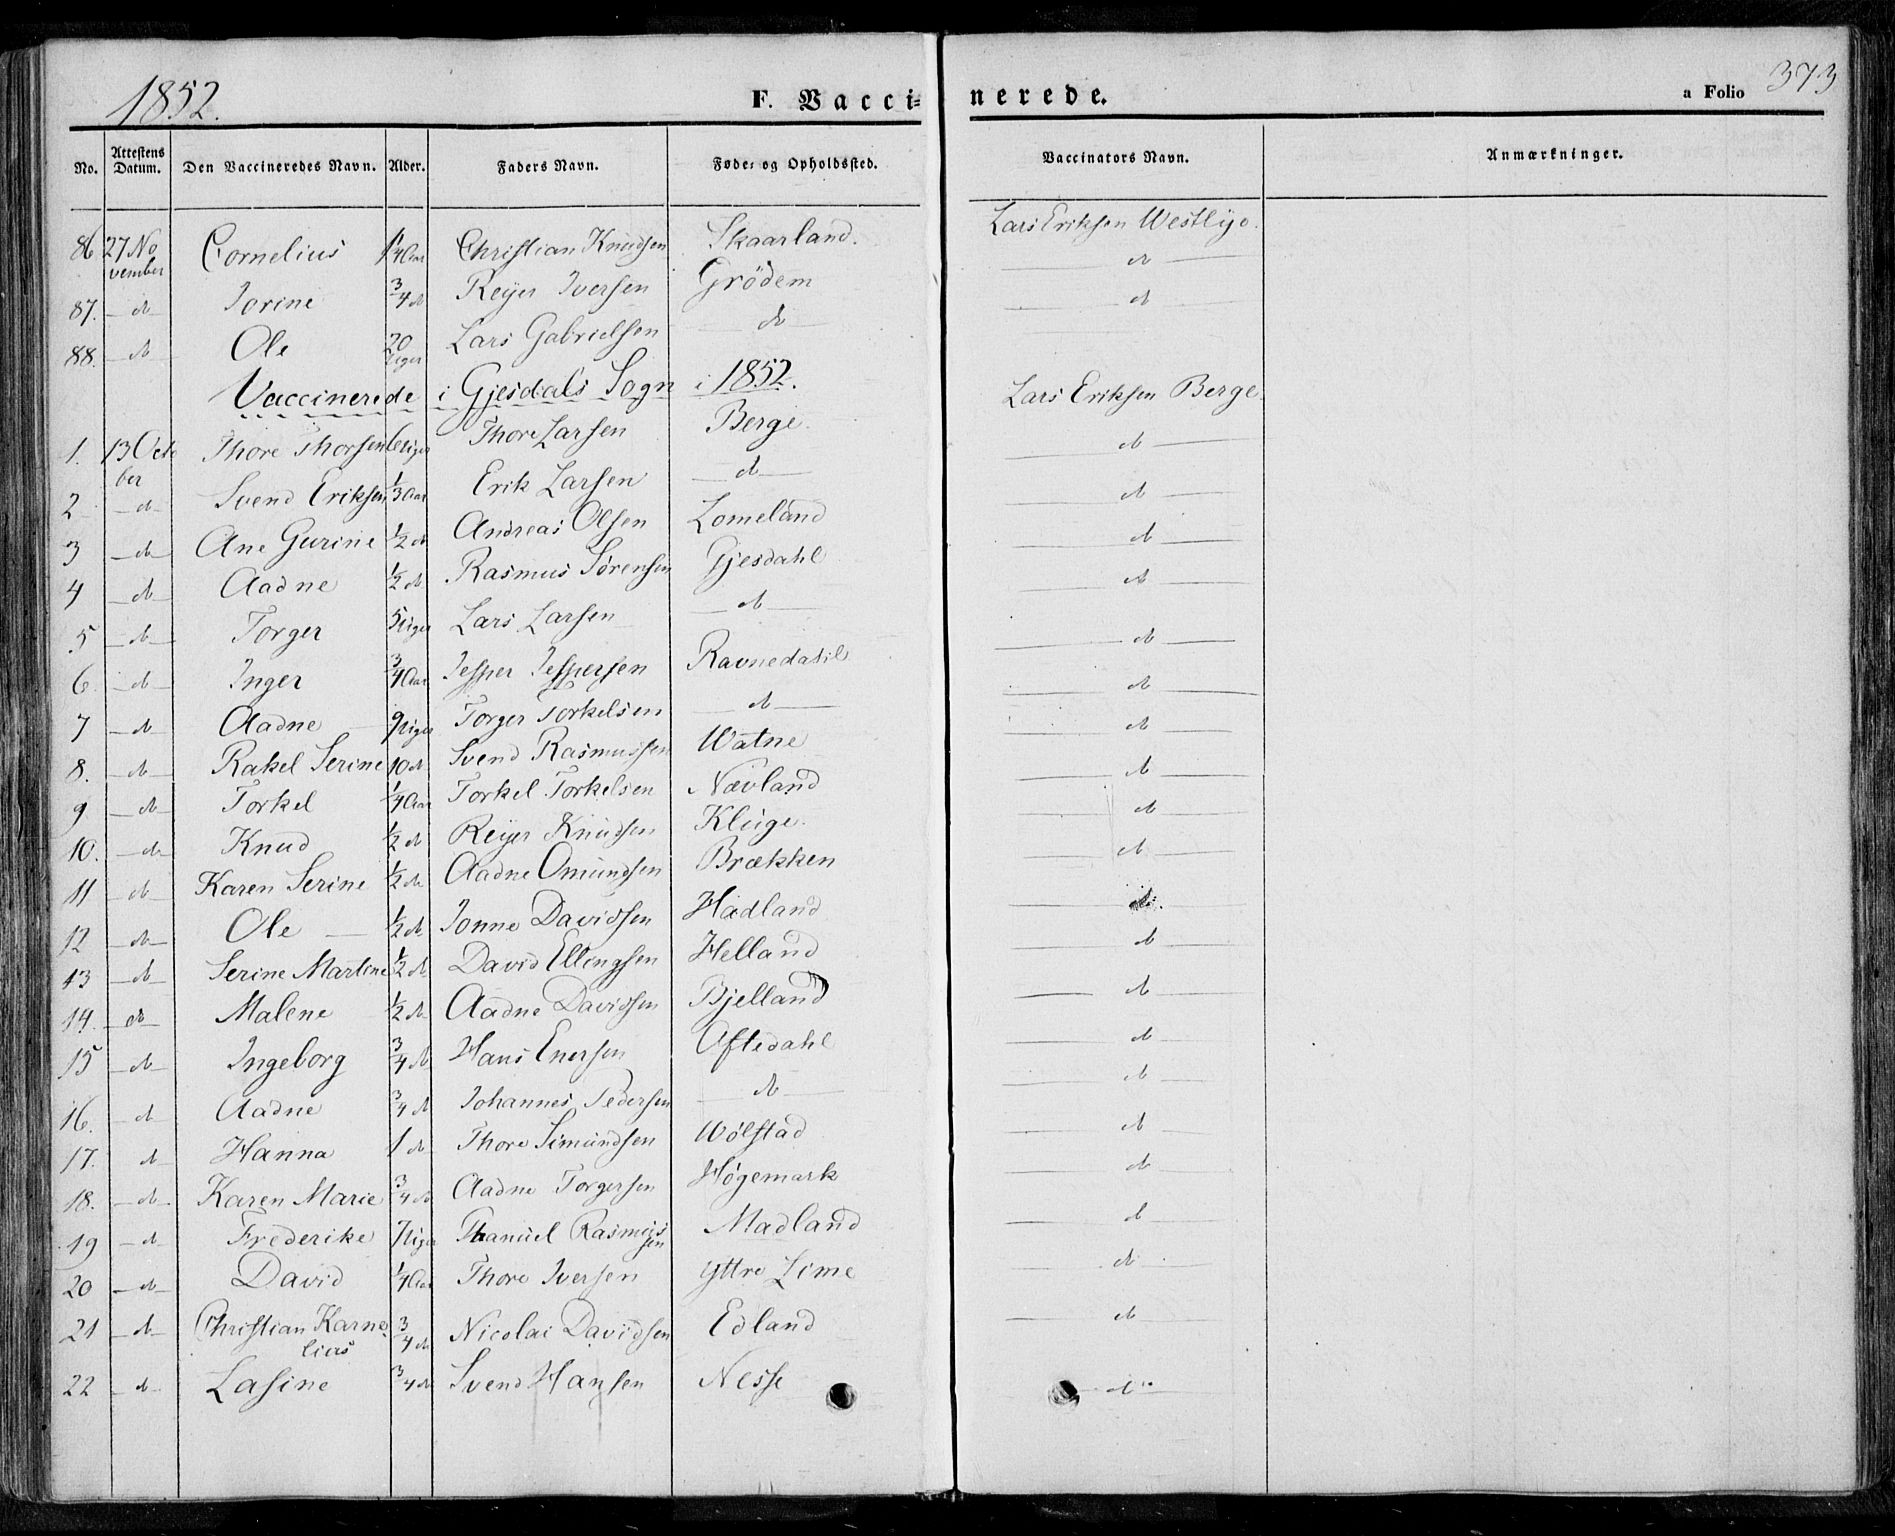 1852.
F. Vacci=
nerede.
a Folio 373
No. Attestens Datum. Den Vaccineredes Navn. Alder. Faders Navn. Føde= og Opholdssted. Vaccinators Navn. Anmærkninger.
86 27 November Cornelius 1/4 Aar Christian Knudsen Skaarland. Lars Eriksen Westlye.
87. — d — Jorine 3/4 d Reyer Iversen Grödem — d —
88. — d — Ole 20 Uger Lars Gabrielsen — d — — d —
Vaccinerede i Gjesdals Sogn i 1852.
1. 13 October Thore Thorsen 6 Uger Thore Larsen Berge. Lars Eriksen Berge.
2 — d — Svend Eriksen 1/3 Aar Erik Larsen — d — — d —
3 — d — Ane Gurine 1/2 d Andreas Olsen Lomeland — d —
4 — d — Aadne 1/2 d Rasmus Sørensen Gjesdahl — d —
5 — d — Torger 5 Uger Lars Larsen — d — — d —
6. — d — Inger 3/4 Aar Jesper Jespersen Ravnedahl — d —
7 — d — Aadne 9 Uger Torger Torkelsen — d — — d —
8. — d — Rakel Serine 10 d Svend Rasmussen Watne — d —
9 — d — Torkel 1/4 Aar Torkel Torkelsen Nævland — d —
10. — d — Knud 1/2 d Reyer Knudsen Kluge. — d —
11 — d — Karen Serine 1/2 d Aadne Omundsen Brækken — d —
12 — d — Ole — 1/2 d Jonne Davidsen Hadland — d —
13 — d — Serine Martine 1/2 d David Ellingsen Helland — d —
14. — d — Malene 1/2 d Aadne Davidsen Bjelland — d —
15 — d — Ingeborg 3/4 d Hans Enersen Oftedahl — d —
16. — d — Aadne 3/4 d Johannes Pedersen — d — — d —
17. — d — Hanna 1 d Thore Simundsen Wølstad — d —
18. — d — Karen Marie 3/4 d Aadne Torgersen Høgemark — d —
19 — d — Frederike 7 Uger Thanuel Rasmussen Madland — d —
20 — d — David 1/4 Aar Thore Iversen Yttre Lime — d —
21 — d — Christian Karnelius 3/4 d Nicolai Davidsen Edland — d —
22 — d — Lasine 3/4 d Svend Hansen Nesse — d —